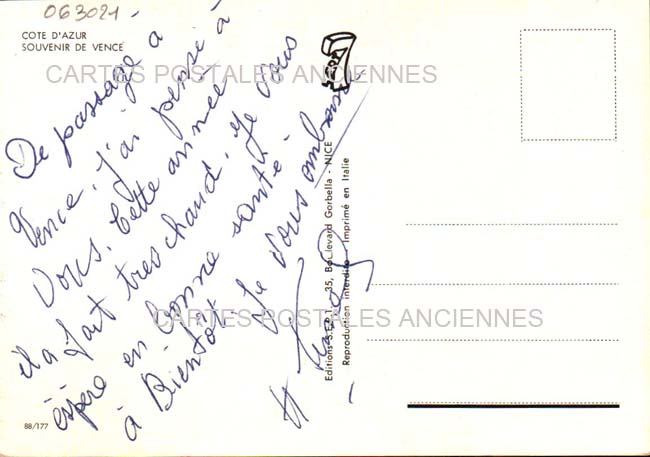 063021-
COTE D'AZUR
SOUVENIR DE VENCE
CARTES POSTALES ANCIENNES
De passage a
Vence, j'ai pensé à
Vous. Cette année
il a fait tres chaud. Je vous
éspère en bonne santé.
à Bientôt. Je vous embrasse
35, Boulevard Gorbella - NICE
Reproduction interdite - Imprimé en Italie
CARTES POSTALES ANCIENNES
88/177